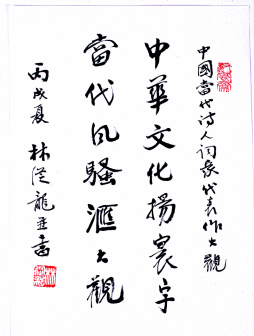 中國當代诗人词家代表作大觀
中華文化揚寰宇
當代风騷滙大觀
丙戌夏 林從龍並書